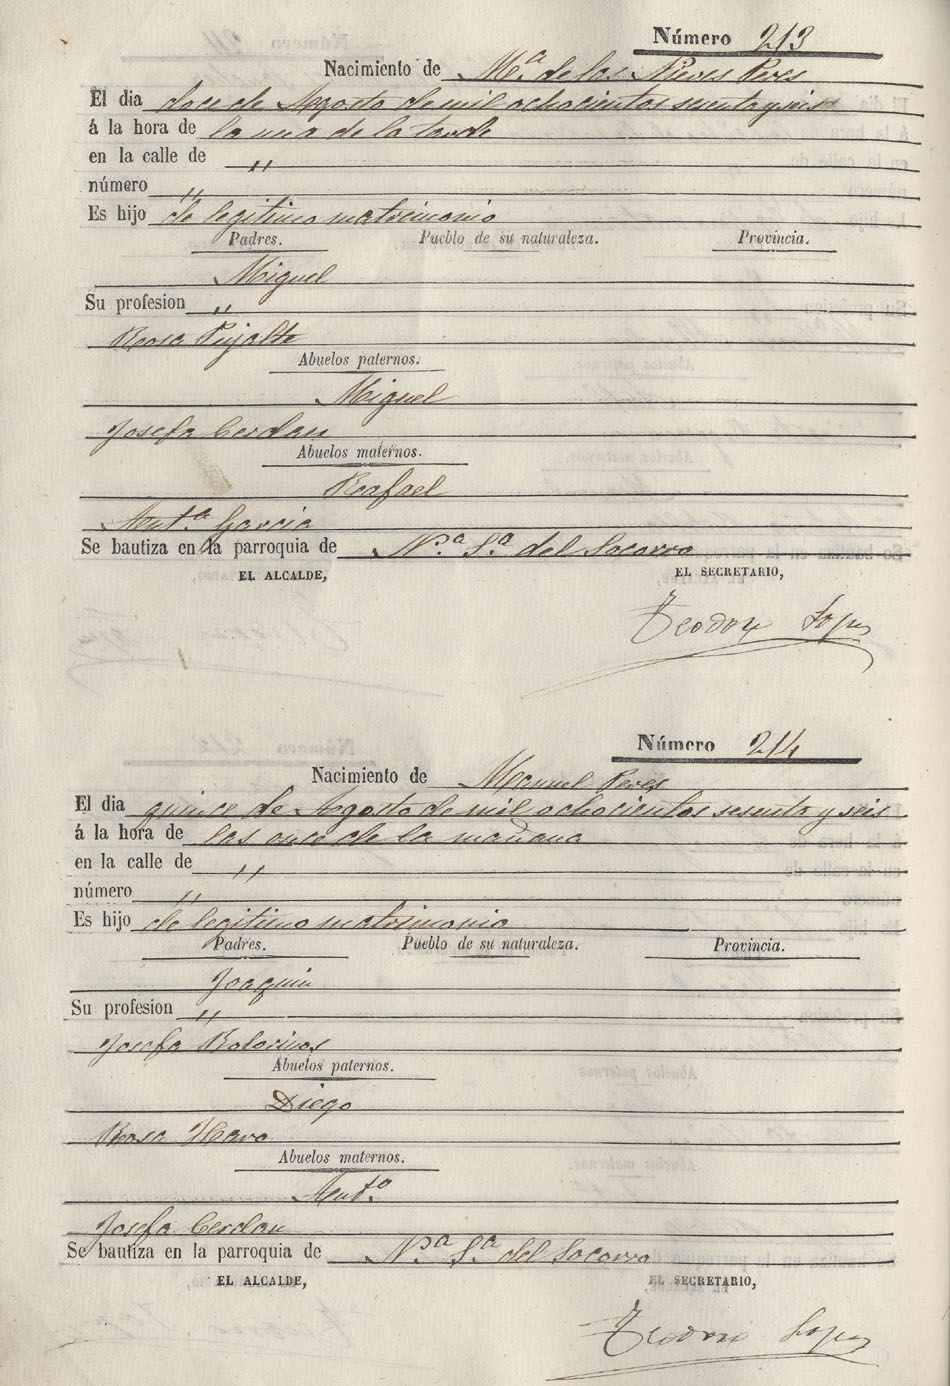 Número 213
Nacimiento de Mª. de las Nieves Peres
El dia doce de Agosto de mil ochocientos sesenta y seis
á la hora de la una de la tarde
en la calle de "
número "
Es hijo de legitimo matrimonio
Padres. Pueblo de su naturaleza. Provincia.
Miguel
Su profesion "
Rosa Pujalte
Abuelos paternos.
Miguel
Josefa Cerdan
Abuelos maternos.
Rafael
Antª Garcia
Se bautiza en la parroquia de Nª Sª del Socorro
EL ALCALDE, EL SECRETARIO,
Teodoro Lopez
Número 214
Nacimiento de Manuel Peres
El dia quince de Agosto de mil ochocientos sesenta y seis
á la hora de las once de la mañana
en la calle de "
número "
Es hijo de legitimo matrimonio
Padres. Pueblo de su naturaleza. Provincia.
Joaquin
Su profesion "
Josefa Bolorinos
Abuelos paternos.
Diego
Rosa
Abuelos maternos.
Antº
Josefa Cerdan
Se bautiza en la parroquia de Nª Sª del Socorro
EL ALCALDE, EL SECRETARIO,
Teodoro Lopez